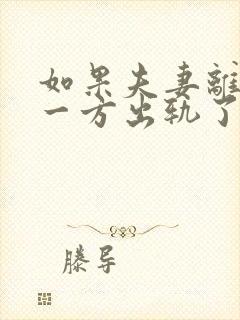 如果夫妻離
一方出轨了
滕导